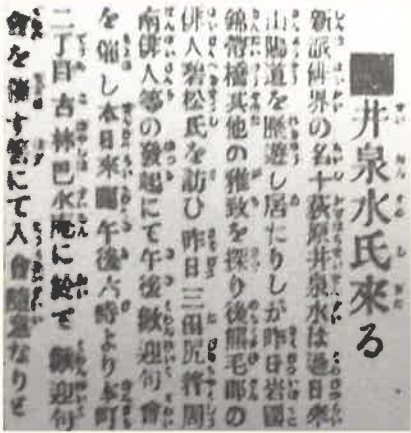 井泉水氏來る
新派俳界の名士荻原井泉水は過日來
山陽道を歷遊し居たりしが昨日岩國
錦帶橋其他の雅致を探り後熊毛郡の
俳人碧松氏を訪ひ昨日三田尻着周
南俳人等の發起にて午後歡迎句會
を催し本日來關午後六時より本町
二丁目古林巴水 に於て歡迎句
會を催す筈にて入會隨意なりと